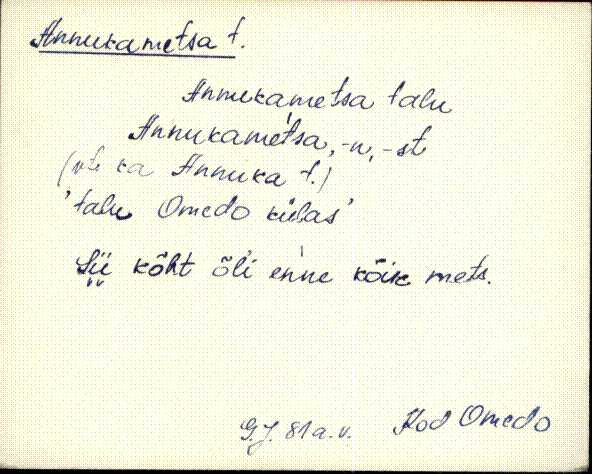 Annukametsa t.
Annukametsa talu
Annukametsa, -n, -st
(vt. ka Annuka t.)
'talu Omedo külas'
Sii kõht õli enne kõik mets.
G.J. 81 a. v. Kod Omedo